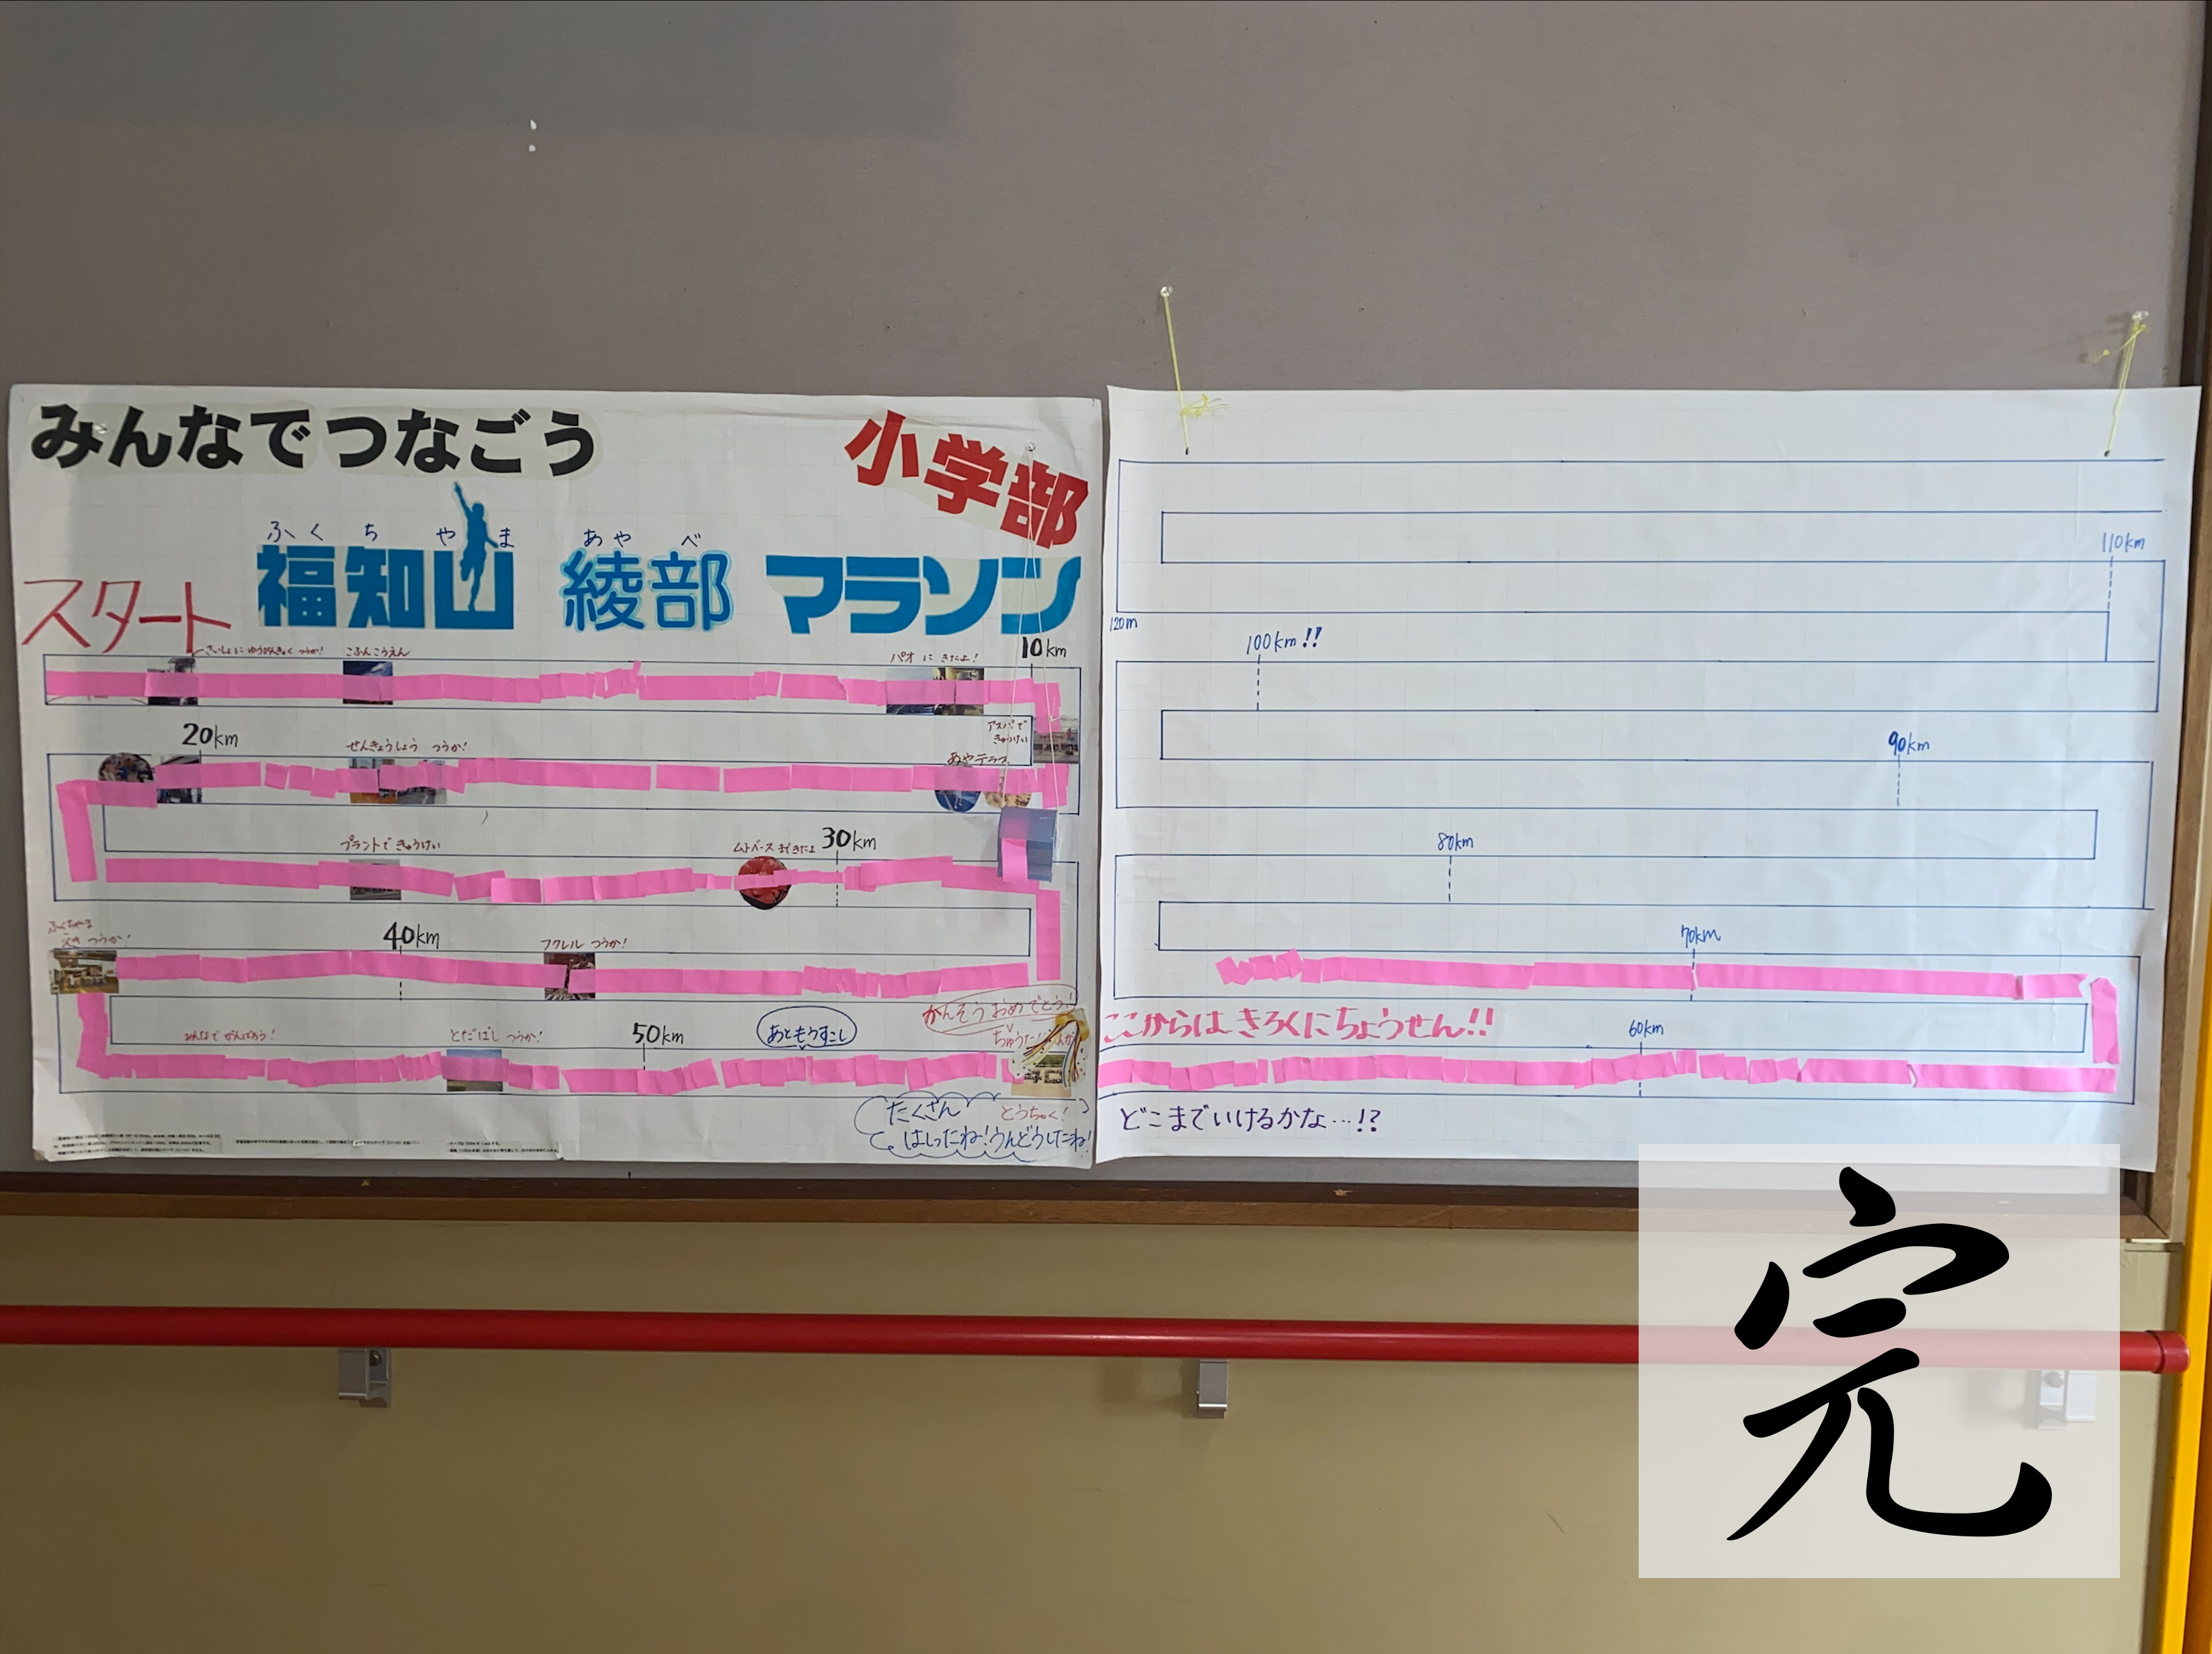 みんなでつなごう
小学部
ふくちやま あやべ
福知山 綾部 マラソン
スタート
さいしょに ゆうびんきょく つうか!
こふんこうえん
パオ に きたよ!
10km
アスパで
きゅうけい
20km
せんきょうしょう つうか!
あやテラス
プラントで きゅうけい
ムトベースまできたよ
30km
つうか!
40km
フクレル つうか!
かんそうおめでとう!
みんなで がんばろう!
とだばし つうか!
50km
あともうすこし
とうちゃく!
たくさん
はしったね!うんどうしたね!
110km
120m
100km!!
90km
80km
70km
ここからは きろくにちょうせん!!
60km
どこまでいけるかな…!?
完